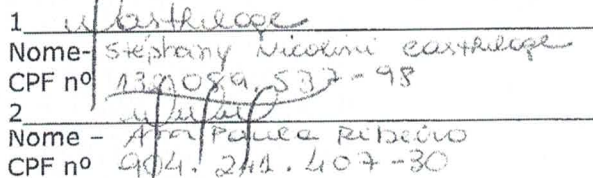 1 
Nome- Stephany Nicolini castheloge
CPF nº 132.089.537-98
2
Nome - Ana Paula Ribeiro
CPF nº 904.241.407-30